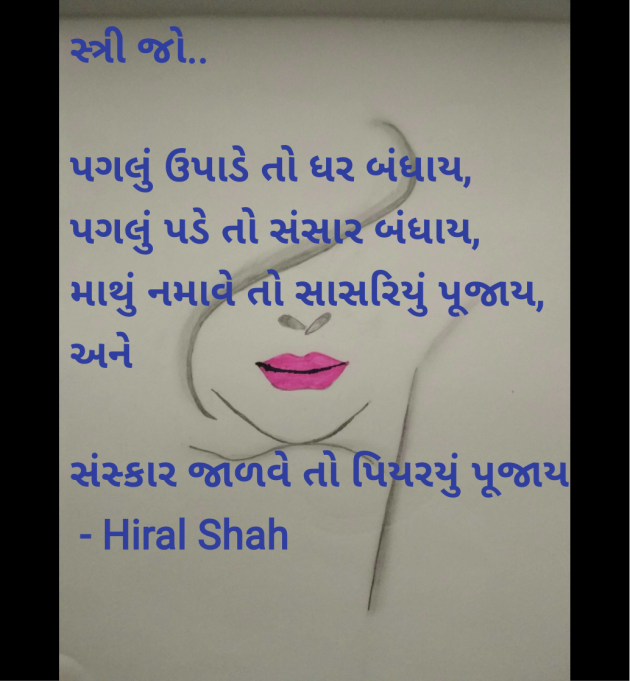 સ્ત્રી જો..
પગલું ઉપાડે તો ધર બંધાય,
પગલું પડે તો સંસાર બંધાય,
માથું નમાવે તો સાસરિયું પૂજાય,
અને
સંસ્કાર જાળવે તો પિયરયું પૂજાય
- Hiral Shah